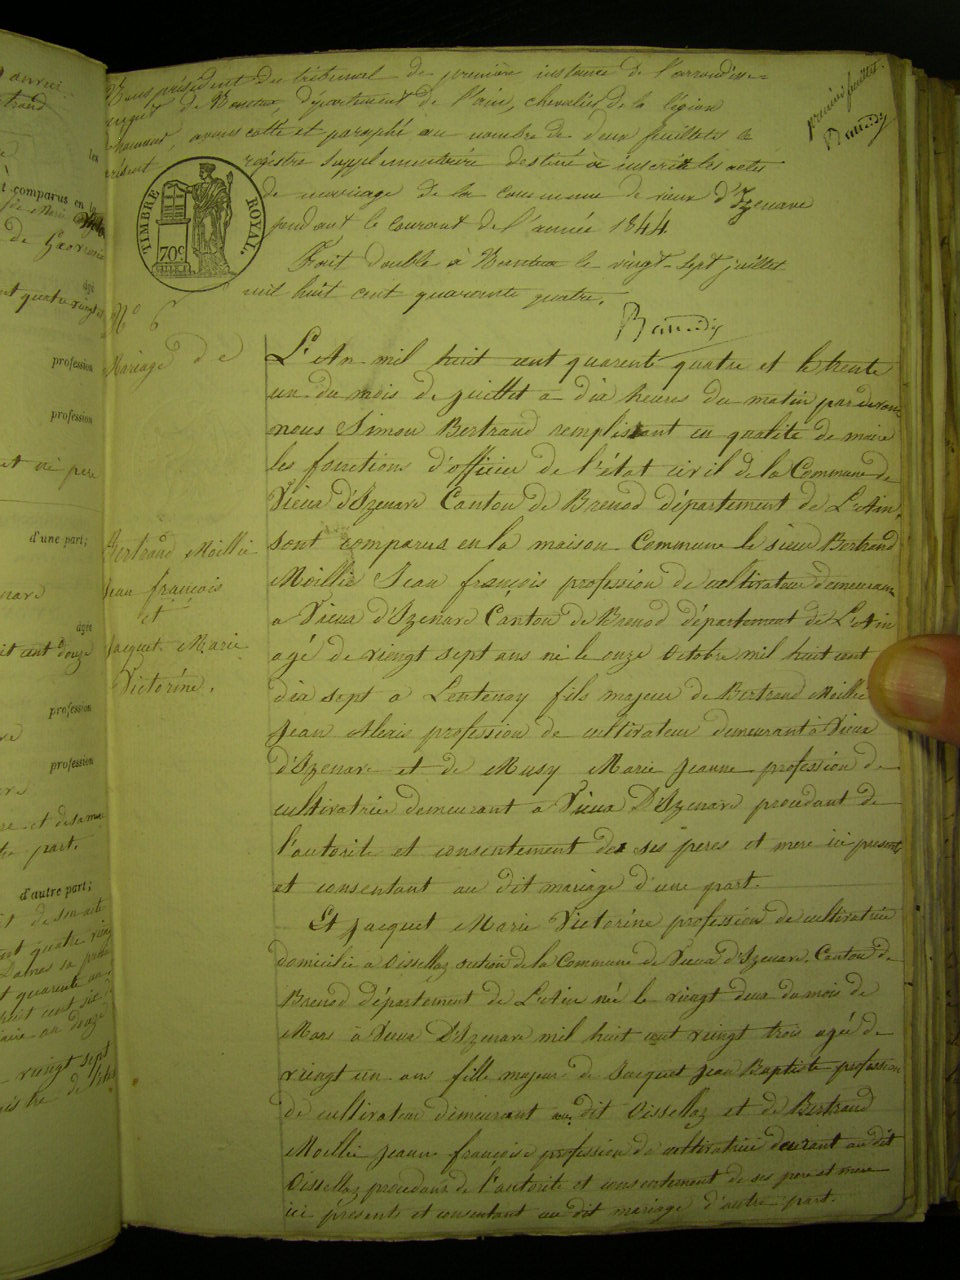 premier feuillet.
Nous président du tribunal de première instance de l'arrondisse-
de Nantua département de l'ain, chevalier de la légion
avons cotté et paraphé au nombre de deux feuillets le
présent registre supplémentaire destiné à inscrire les actes
de mariage de la commune de vieux d'Izenave
pendant le courant de l'année 1844
Fait double à Nantua le vingt-sept juillet
mil huit cent quarante quatre.
TIMBRE ROYAL.
70c
No 6
Mariage de
Bertrand Moillie
Jean françois
et
Jacquet Marie
Victorine.
L'An mil huit cent quarent quatre et le trente
un du mois de juillet a dix heures du matin par devant
nous Simon Bertrand remplissant en qualité de maire
les fonctions d'officier de l'état civil de la Commune de
Vieux d'Izenave Canton de Brenod département de L'Ain.
sont comparus en la maison Commune le sieur Bertrand
Moillie Jean françois profession de cultivateur demeurant
a Vieux d'Izenave Canton de Brenod département de L'Ain
agé de vingt sept ans né le onze Octobre mil huit cent
dix sept a Lentenay fils majeur de Bertrand Moillie
Jean Alexis profession de cultivateur demeurant à Vieux
d'Izenave et de Musy Marie Jeanne profession de
cultivatrice demeurant a Vieux D'Izenave procedant de
l'autorité et consentement de ses peres et mere ici presents
et consentant au dit mariage d'une part.
Et Jacquet Marie Victorine profession de cultivatrice
domicilié a Oissellaz section de la Commune de Vieux d'Izenave. Canton de
Brenod département de L'Ain née le vingt deux du mois de
Mars à Vieux D'Izenave mil huit cent vingt trois agée de
vingt un ans fille majeur de Jacquet Jean Baptiste profession
de cultivateur demeurant au dit Oissellaz et de Bertrand
Moillie Jeanne françoise profession de cultivatrice deurant au dit
Oissellaz procedant de l'autorité et consentement de ses pere et mere
ici présents et consentant au dit mariage d'autre part.
comparus en la
profession
profession
d'une part;
agée
profession
profession
d'autre part;